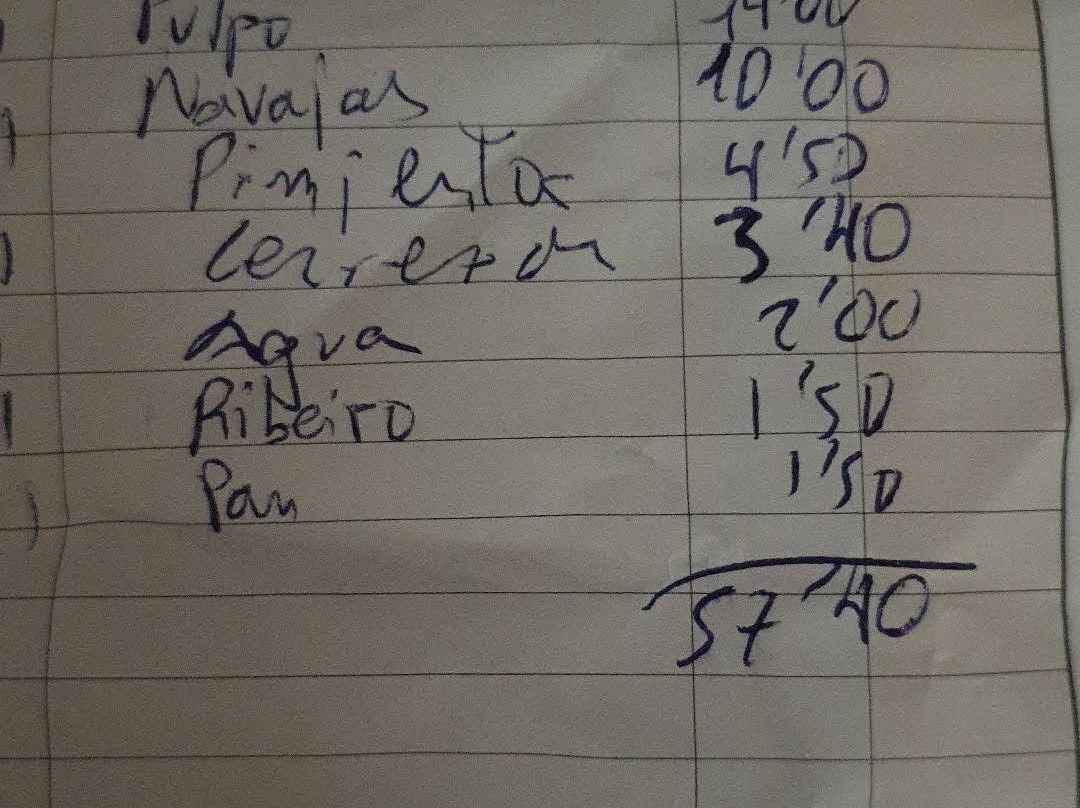 Pulpo 14'00
1 Navajas 10'00
Pimientos 4'50
1 Cerveza 3'40
Agua 2'00
1 Ribeiro 1'50
1 Pan 1'50
57'40